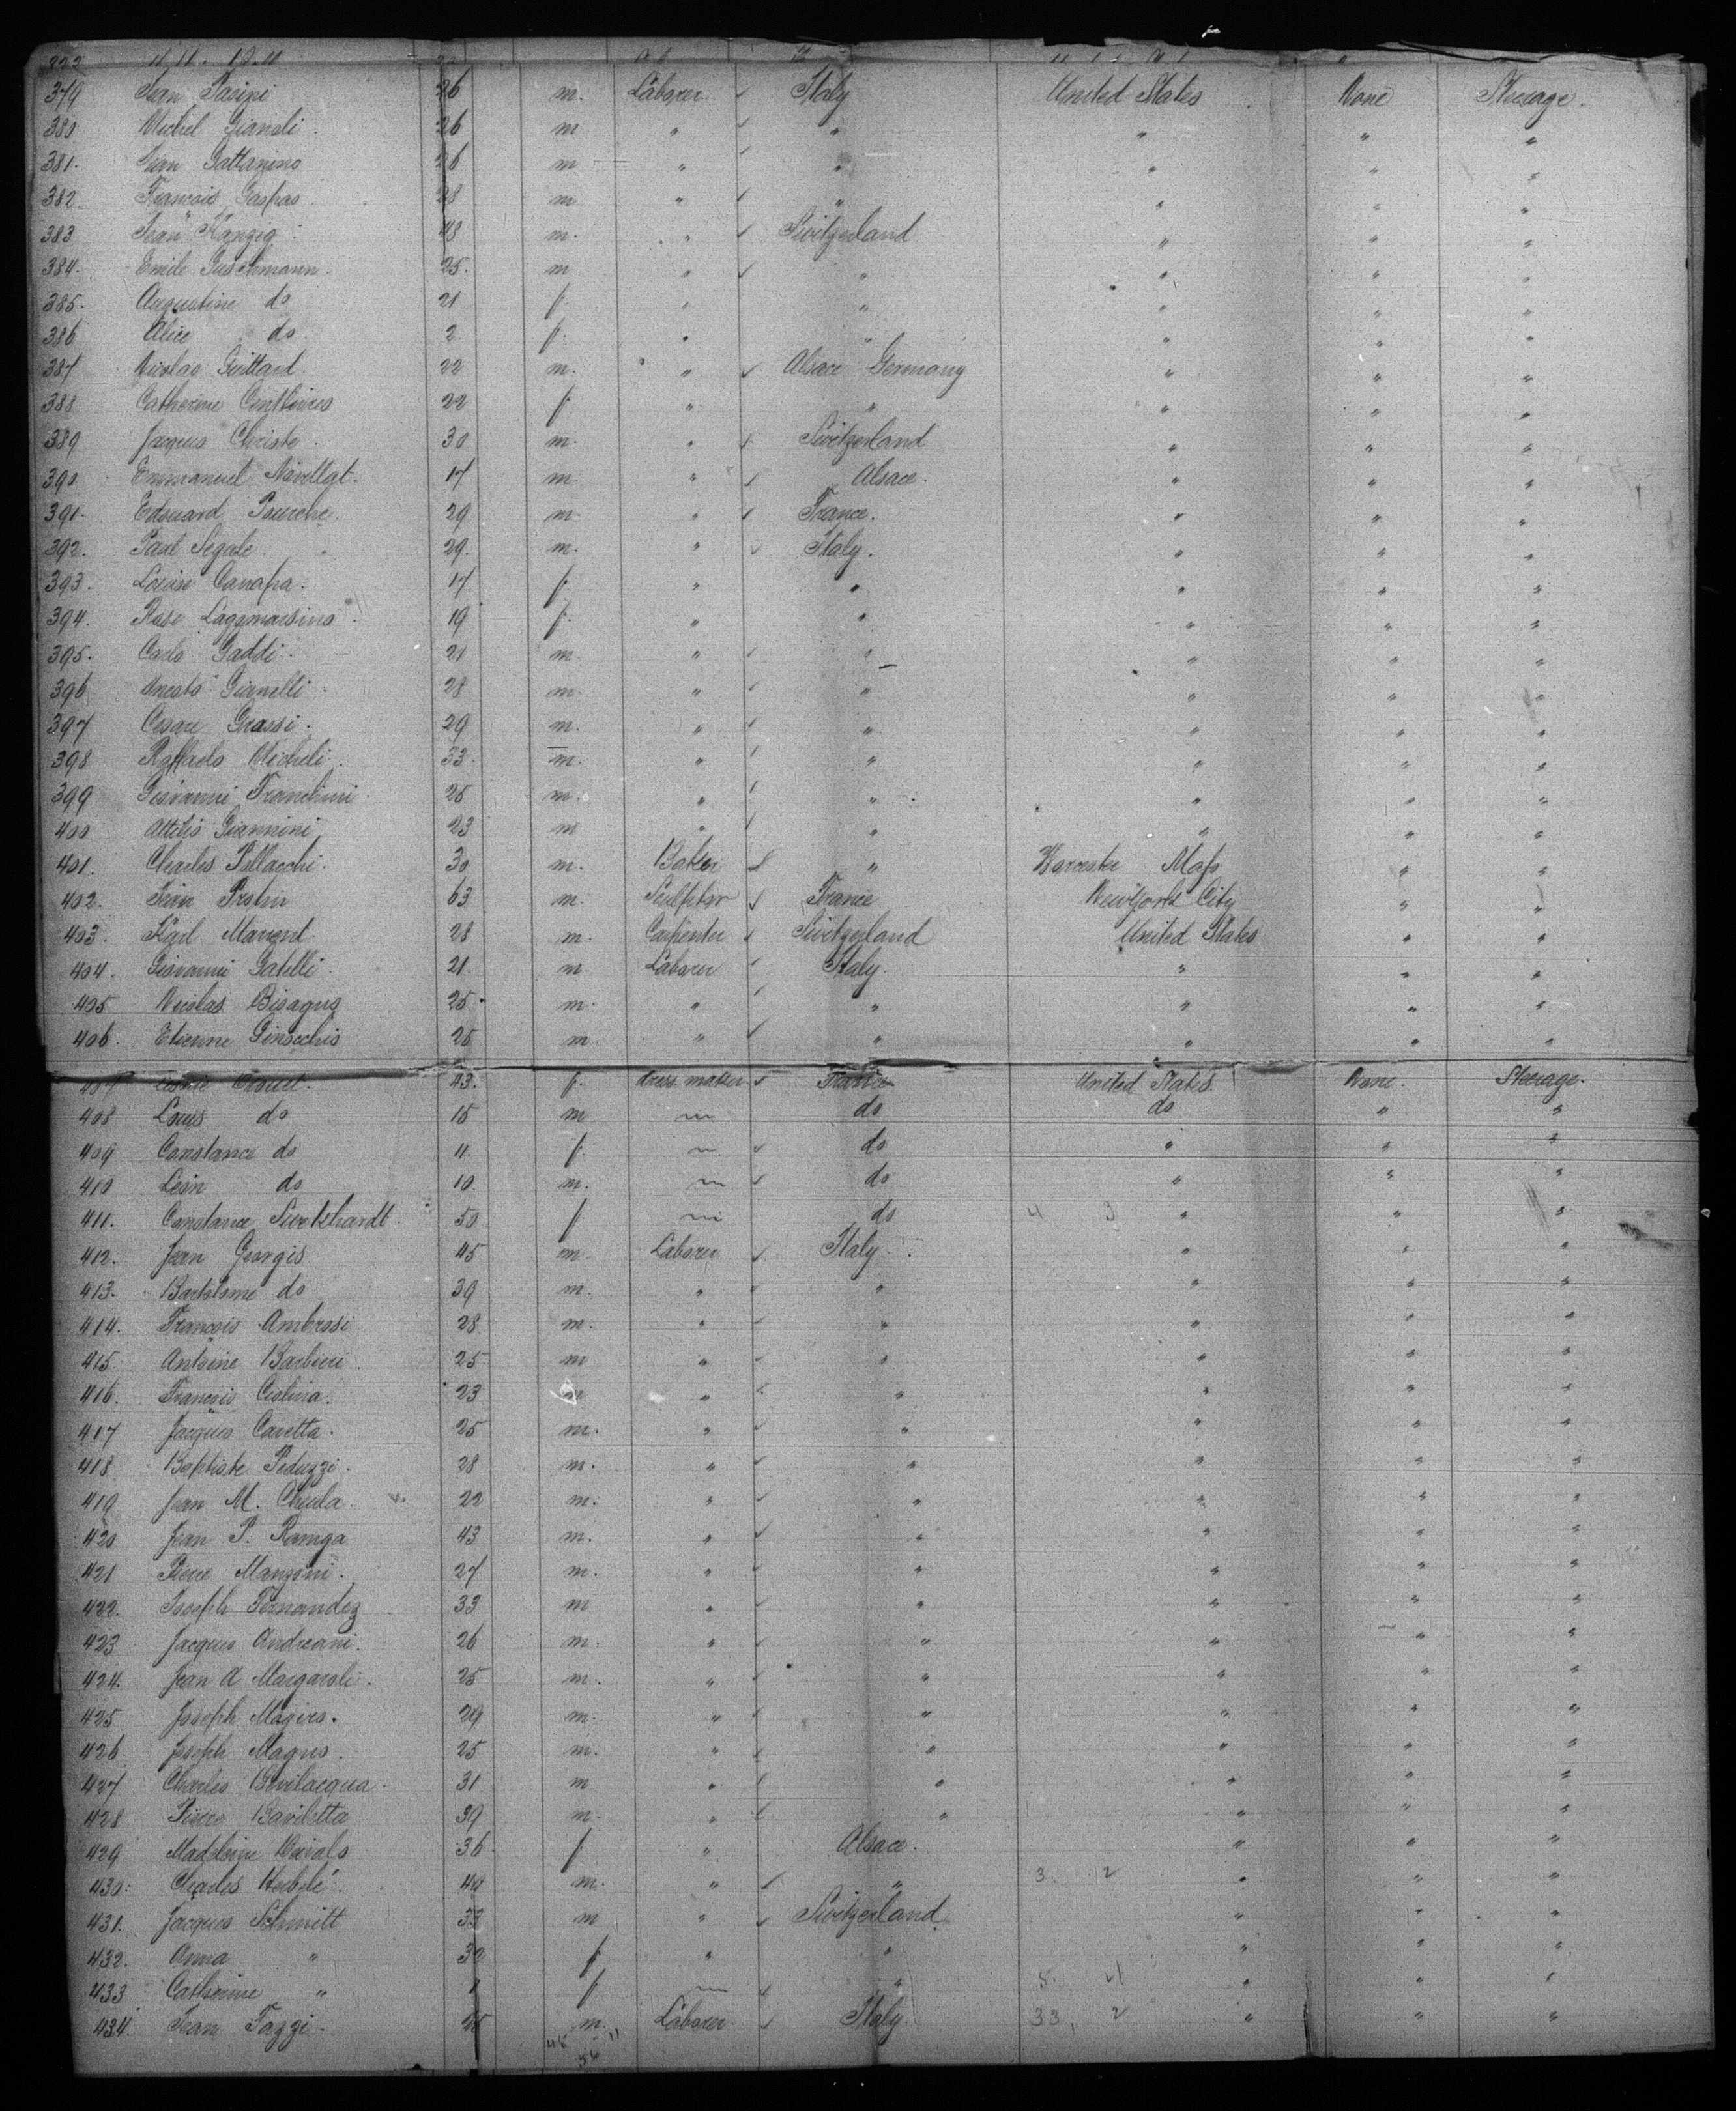 379 Jean Pasini 26 m. Laborer Italy United States None Steerage.
380 Michel Gianoli 26 m " " " " "
381. Jean Gattarino 26 m " " " " "
382. François Gaspas 28 m " " " " "
383 Jean Känzig 48 m. " Switzerland " " "
384. Emile Guschmann. 25. m " " " " "
385. Augustine do 21 f. " " " " "
386 Alice do. 2 f. " " " " "
387 Nicolas Guittard 22 m. " Alsace Germany " " "
388 Catherine Centlivres 22 f " " " " "
389 Jacques Christe. 30 m. " Switzerland " " "
390 Emmanuel 17 m. " Alsace. " " "
391. Edouard Pourche. 29 m. " France. " " "
392. Paul Segale. 29. m. " Italy. " " "
393. Louise Canapa. 17 f. " " " " "
394. Rose Laggomarsino 19 f. " " " " "
395. Carlo Gaddi. 21 m " " " " "
396 Gianelli 28 m. " " " " "
397 Cesare Grassi. 29 m. " " " " "
398 Raffaelo Micheli. 33. m. " " " " "
399 Giovanni Franchini 25 m. " " " " "
400 Attilio Giannini 23 m " " " " "
401. Charles Pellacchi. 30 m. Baker " Worcester Mass " "
402. Jean Protin 63 m. Sculptor France New York City " "
403. Karl 28 m. Carpenter Switzerland United States " "
404. Giovanni Gatelli 21 m. Laborer Italy. " " "
405 Nicolas Bisagno 25. m. " " " " "
406. Etienne Ginocchio 25 m. " " " " "
407 43. f. dress maker France United States None. Steerage.
408 Louis do 15 m do do " "
409 Constance do 11 f. do " " "
410 Léon do 10. m. do " " "
411. Constance 50 f do 4 3 " " "
412. Jean Georgis 45 m. Laborer Italy. " " "
413. Bartolomé do 39 m. " " " " "
414. François Ambrosi 28 m. " " " " "
415 Antoine Barbieri 25 m " " " " "
416. François 23 m " " " " "
417 Jacques Caretta. 25 m. " " " " "
418 Baptiste Peduzzi. 28 m. " " " " "
419 Jean M. 22 m. " " " " "
420 Jean P. Ramga 43 m. " " " " "
421 Pierre Manzoni. 27 m. " " " " "
422. Joseph Fernandez 33 m " " " " "
423 Jacques Andreani. 26 m. " " " " "
424. Jean A Margaroli. 25 m. " " " " "
425 Joseph 29 m. " " " " "
426 Joseph Magno. 25 m. " " " " "
427 Charles Bevilacqua. 31 m " " " " "
428 Pierre Baviletta 39 m. " " " " "
429 Madeleine 36 f " Alsace. " " "
430. Charles 40 m. " " 3. 2 " " "
431. Jacques Schmitt 33 m " Switzerland " " "
432. Anna " 30 f. " " " " "
433 Catherine " 1 f " 5. 4 " " "
434. Jean Fazzi. 25 m. Laborer Italy 33. 2 " " "
45 11
56